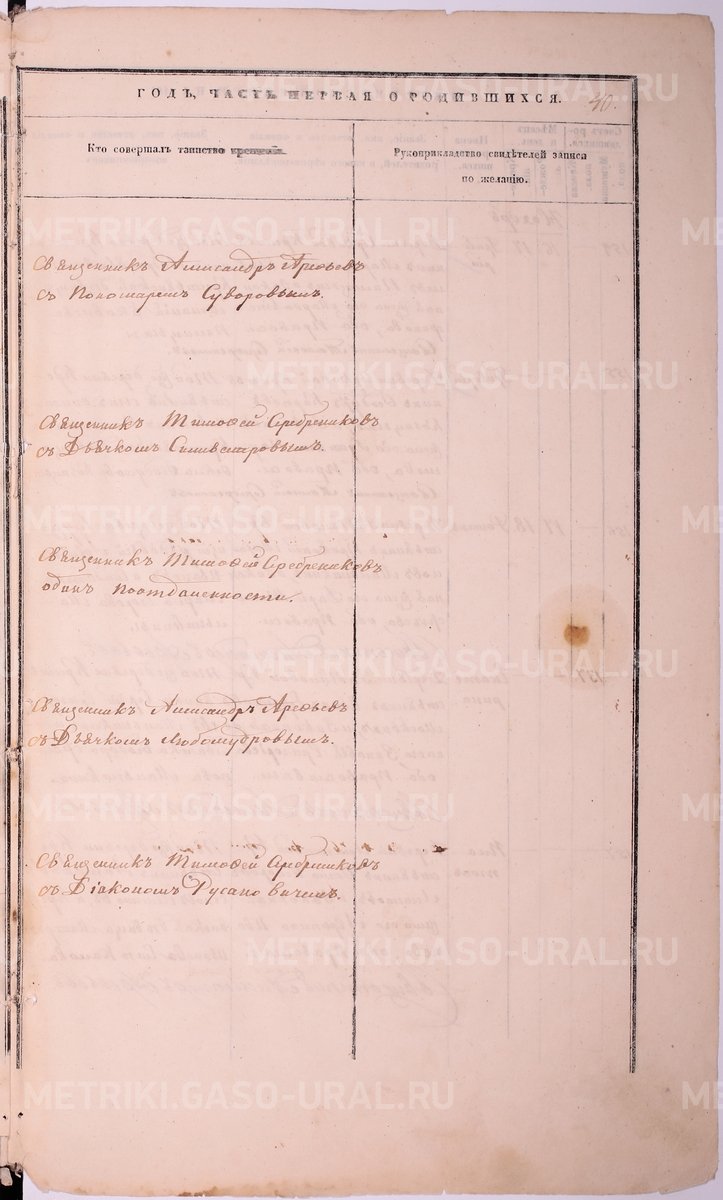 ГОДЪ, ЧАСТЬ ПЕРВАЯ О РОДИВШИХСЯ.
40.
Кто совершалъ таинство крещенія.
Рукоприкладство свидѣтелей записа
по желанію.
Священникъ Александръ Арефьевъ
съ Пономаремъ Суворовымъ.
Священникъ Тимофей Серебрениковъ
съ Дьячкомъ Силивестровымъ.
Священникъ Тимофей Серебрениковъ
одинъ поотдаленности.
Священникъ Александръ Арефьевъ
съ Дьячкомъ Любомудровымъ.
Священникъ Тимофей Серебрениковъ
съ Діакономъ Русановичемъ.
METRIKI.GASO-URAL.RU